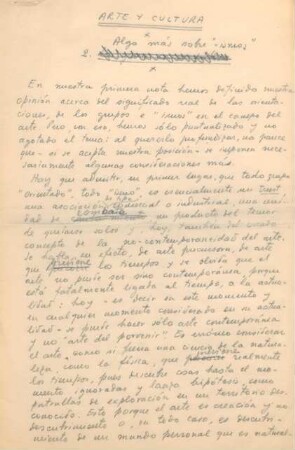 ARTE Y CULTURA
Algo más sobre "ismos"
2.
En nuestra primera nota hemos definido nuestra
opinión acerca del significado real de las orienta-
ciones, de los grupos e "ismos" en el campo del
arte. Pero en eso, hemos sólo puntualizado y no
agotado el tema; al quererlo profundizar, nos parece
que - si se acepta nuestra posición - se imponen ne-
cesariamente algunas consideraciones más.
Hay que admitir, en primer lugar, que todo grupo
"orientado", todo "ismo", es esencialmente un
una asociación de tipo comercial o industrial, una
de un producto del temor
de quedarse solos; hay, también, el
concepto de la no-contemporaneidad del arte.
Se habla, en efecto, de arte precursora, de arte
que presione los tiempos y se olvida que el
arte no puede ser sino contemporánea, porque
está totalmente ligado al tiempo, a la actua-
lidad: hoy - es decir en este momento y
en cualquier momento considerado en su actua-
lidad - se puede hacer sólo arte contemporánea
y no "arte del porvenir". Es inútil considerar
el arte como si fuera una ciencia de la natura-
leza, como la física, que presione realmente
los tiempos, pues descubre cosas hasta el mo-
mento ignoradas y lanza hipótesis, como
patrullas de exploración en un territorio des-
conocido. Esto porque el arte es creación y no
descubrimiento o, en todo caso, es descubri-
miento de un mundo personal que es natural-